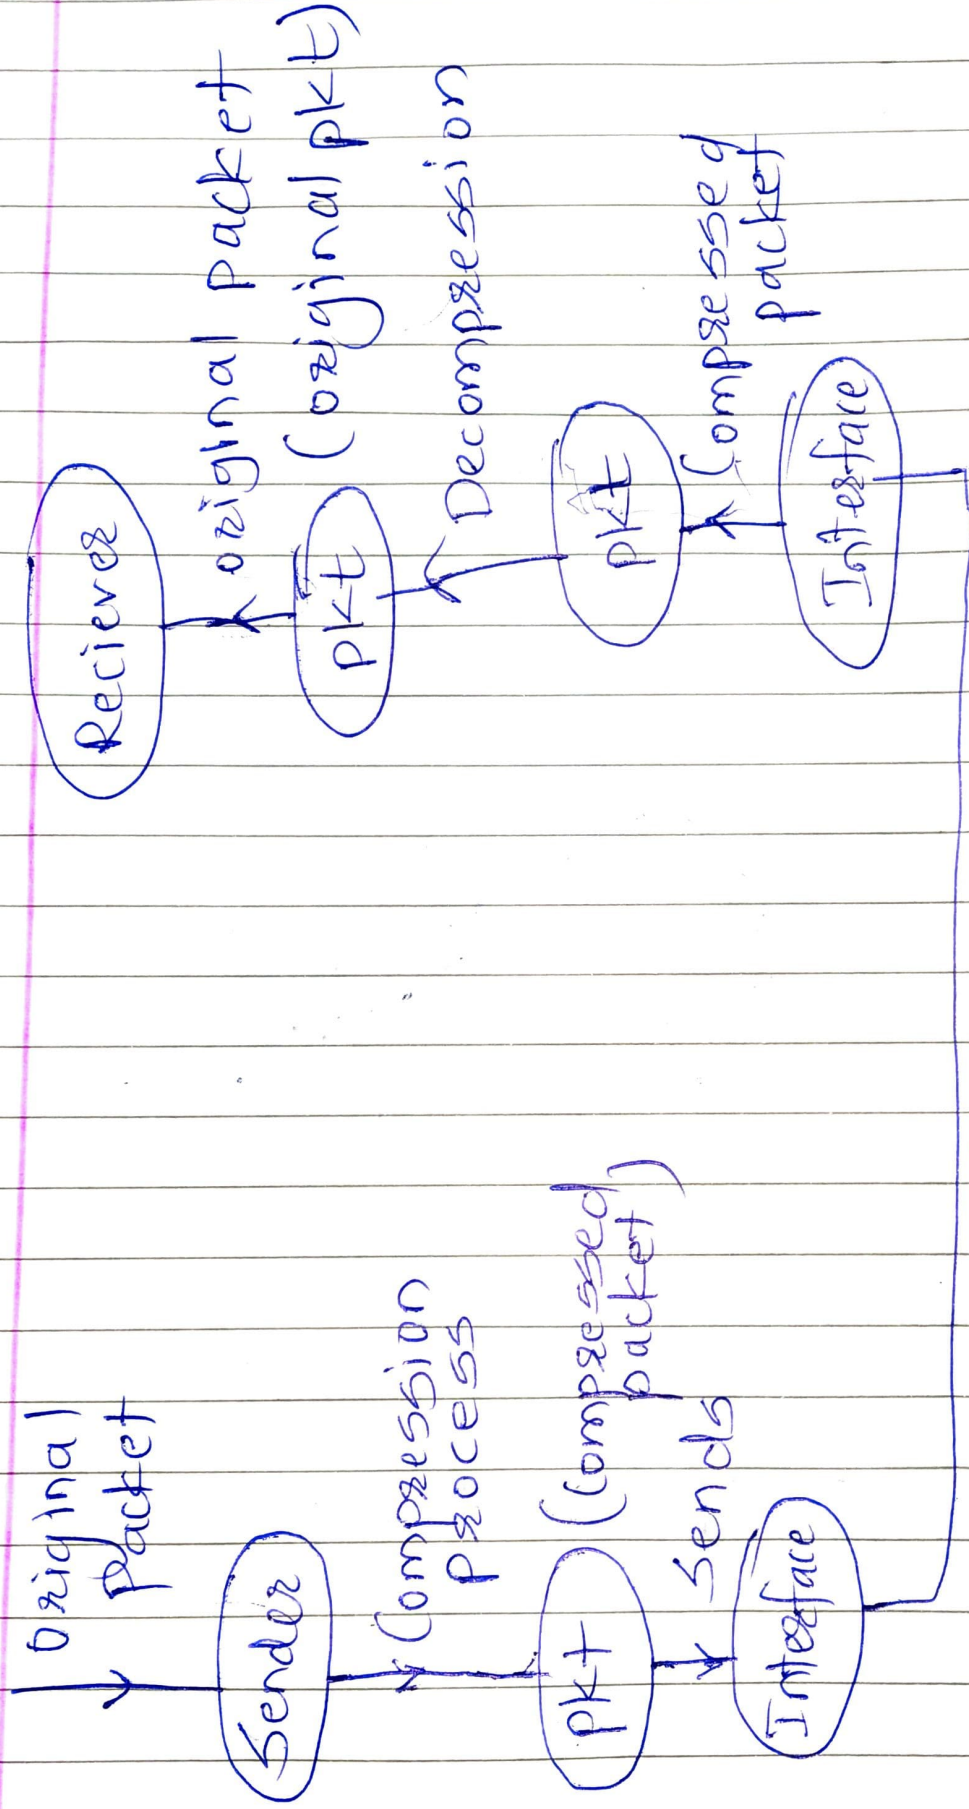 Original
Packet
Sender
Compression
process
pkt
(Compressed
packet)
Sends
Interface
Reciever
original packet
pkt
(original pkt)
Decompression
pkt
Compressed
packet
Interface